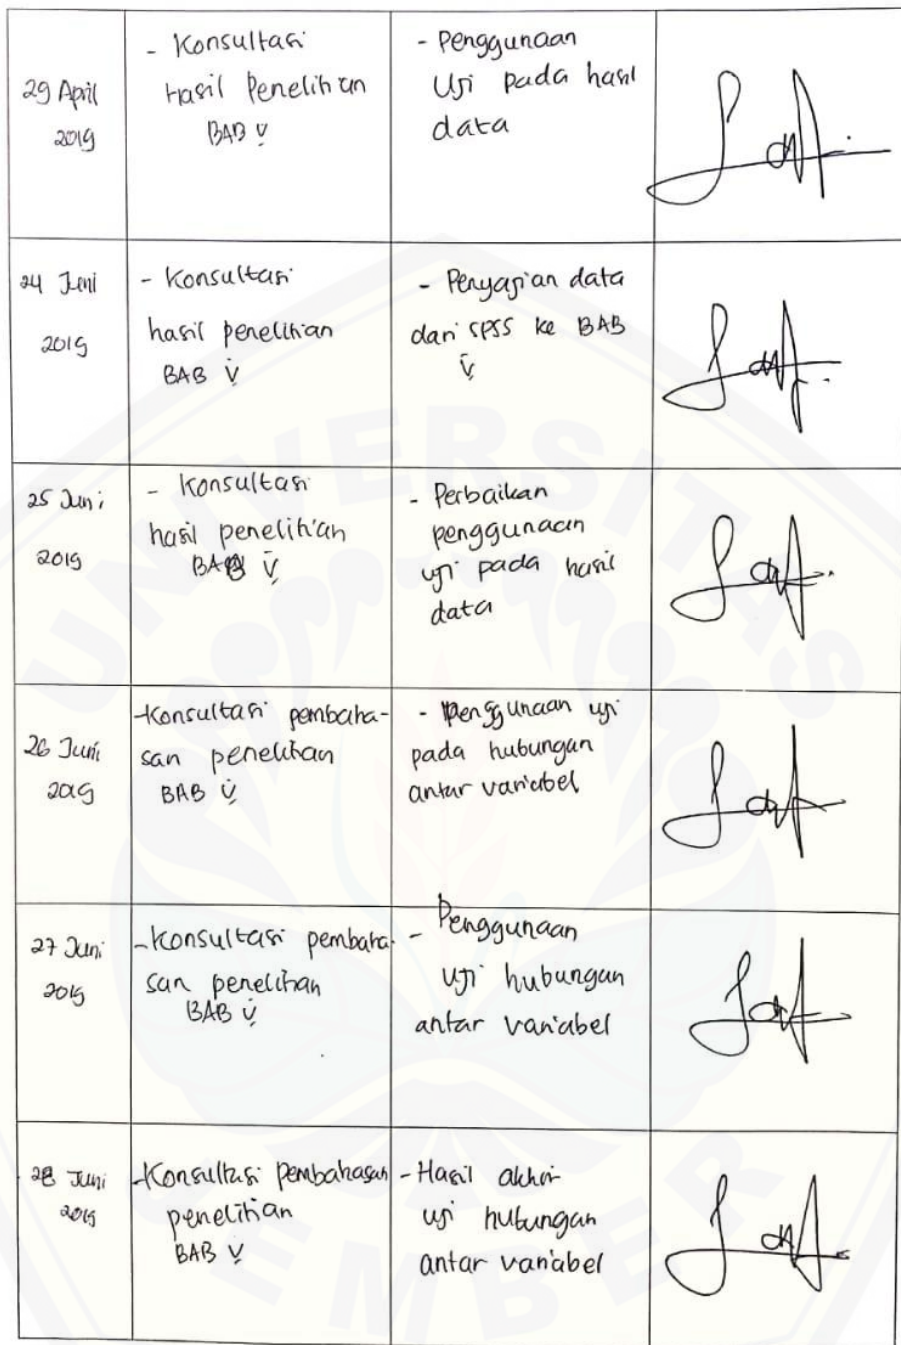 29 April
2019
- Konsultasi
Hasil Penelitian
BAB V
- Penggunaan
Uji pada hasil
data
24 Juni
2019
- Konsultasi
hasil penelitian
BAB V
- Penyajian data
dari SPSS ke BAB
V
25 Juni
2019
- Konsultasi
hasil penelitian
BAB V
- Perbaikan
penggunaan
uji pada hasil
data
26 Juni
2019
- Konsultasi pembaha-
san penelitian
BAB V
- Penggunaan uji
pada hubungan
antar variabel
27 Juni
2019
- Konsultasi pembaha-
san penelitian
BAB V
- Penggunaan
uji hubungan
antar variabel
28 Juni
2019
- Konsultasi pembahasan
penelitian
BAB V
- Hasil akhir
uji hubungan
antar variabel
UNIVERSITAS
JEMBER